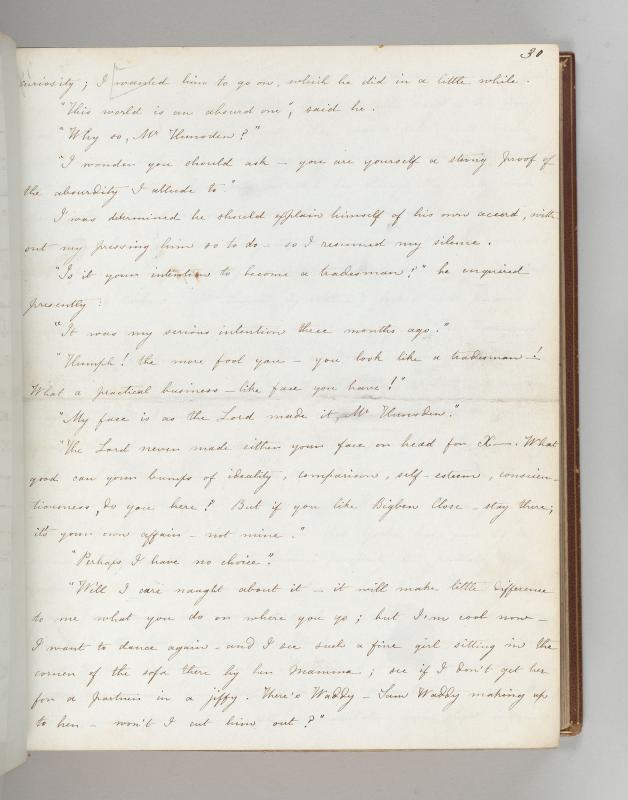 30
curiosity; I wanted him to go on, which he did in a little while.
"This world is an absurd one", said he.
"Why so, Mr Hunsden?"
"I wonder you should ask – you are yourself a strong proof of
the absurdity I allude to."
I was determined he should explain himself of his own accord, with-
out my pressing him so to do – so I resumed my silence.
"Is it your intention to become a tradesman?" he enquired
presently:
"It was my serious intention three months ago."
"Humph! the more fool you – you look like a tradesman –!
What a practical business-like face you have!"
"My face is as the Lord made it, Mr Hunsden."
"The Lord never made either your face or head for X—. What
good can your bumps of ideality, comparison, self-esteem, conscien-
tiousness, do you here? But if you like Bigben Close – stay there;
it's your own affair – not mine."
"Perhaps I have no choice".
"Well I care naught about it – it will make little difference
to me what you do or where you go; but I'm cool now –
I want to dance again – and I see such a fine girl sitting in the
corner of the sofa there by her Mamma; see if I don't get her
for a partner in a jiffy. There's Waddy – Sam Waddy making up
to her – won't I cut him out?"